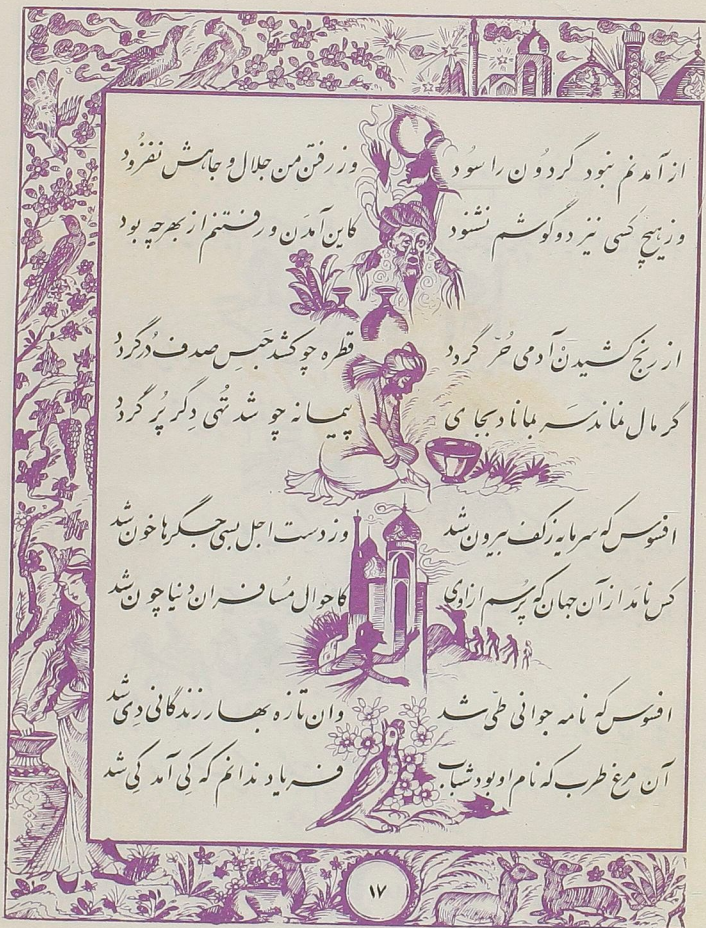 از آمدنم نبود گردُون را سُود وز رفتن من جلال و جاهش نفزُود
وز هیچ کسی نیز دو گوشم نشنود کاین آمدَن و رفتنم از بهر چه بود
از رنج کشیدنْ آدمی حُر گردد قطره چو کشد حَبسِ صدف دُر گردد
گر مال نماند سر بماناد بجای پیمانه چو شد تُهی دِگر پُر گردد
افسوس که سرمایه زکف بیرون شد وز دست اجل بسی جگرها خون شد
کس نامد از آن جهان که پُرسم از وی کاحوال مُسافران دنیا چون شد
افسوس که نامه جوانی طی شد وان تازه بهار زندگانی دِی شد
آن مرغ طرب که نام او بود شباب فریاد ندانم که کِی آمد کِی شد
۱۷